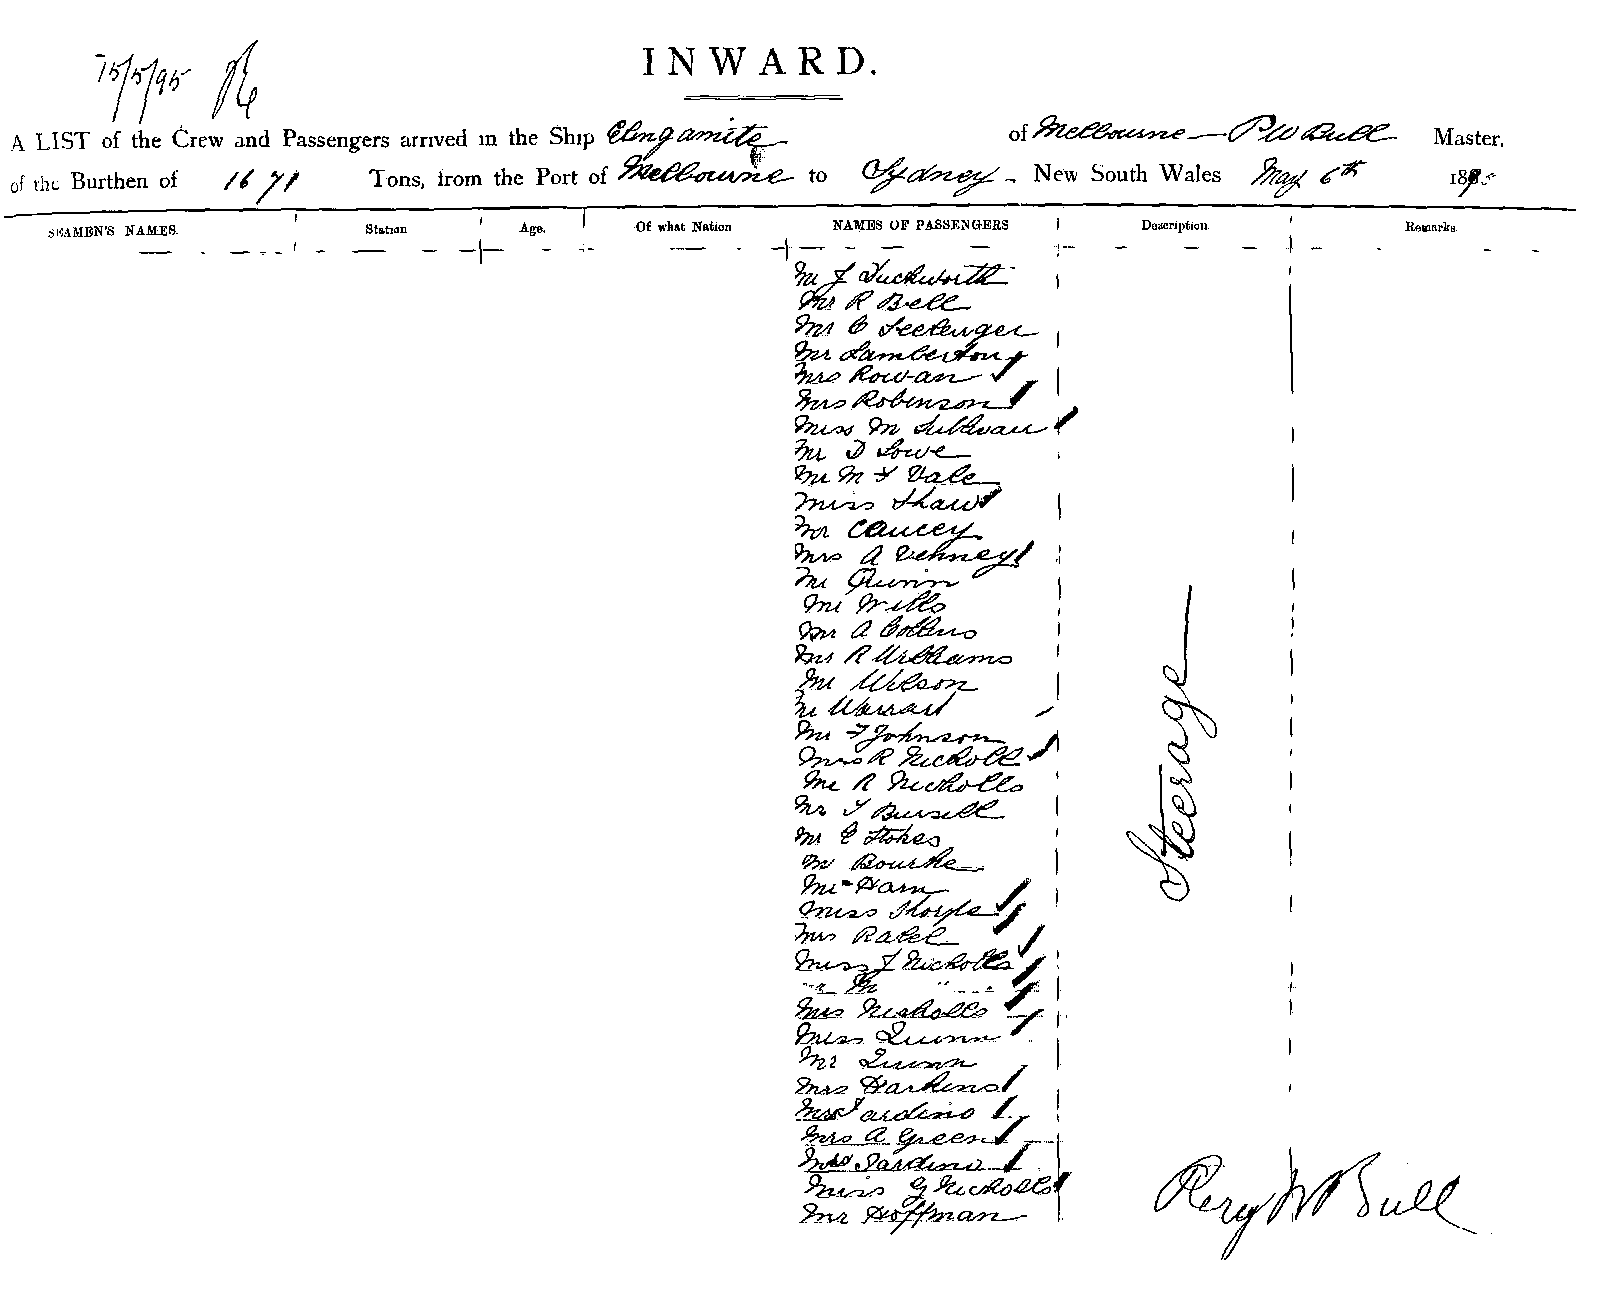 15/5/95
INWARD.
A LIST of the Crew and Passengers arrived in the Ship Elingamite of Melbourne — P W Bull Master,
of the Burthen of 1671 Tons, from the Port of Melbourne to Sydney - New South Wales May 6th 1895
SEAMEN'S NAMES. Station Age. Of what Nation NAMES OF PASSENGERS Description Remarks.
Mr J Duckworth
Mr R Bell
Mr C
Mr Lamberton
Mrs Rowan
Mrs Robinson
Miss M Sullivan
Mr D Lowe
Mr M F Vale
Miss Shaw
Mr Caucey
Mrs A Vehney
Mr Quinn
Mr Wills
Mr A Collins
Mr R Williams
Mr Wilson
Mr
Mr F Johnson
Mrs R Nicholls
Mr R Nicholls
Mr T Bussell
Mr E Stokes
Mr Bourke
Mr Harn
Miss Thorpe
Mrs Rabel
Miss J Nicholls
" M "
Mrs Nicholls
Miss Quinn
Mr Quinn
Mrs Harkens
Mrs Jardino
Mrs A Green
Mrs Jardino
Miss G Nicholls
Mr Hoffman
Steerage
Percy W Bull